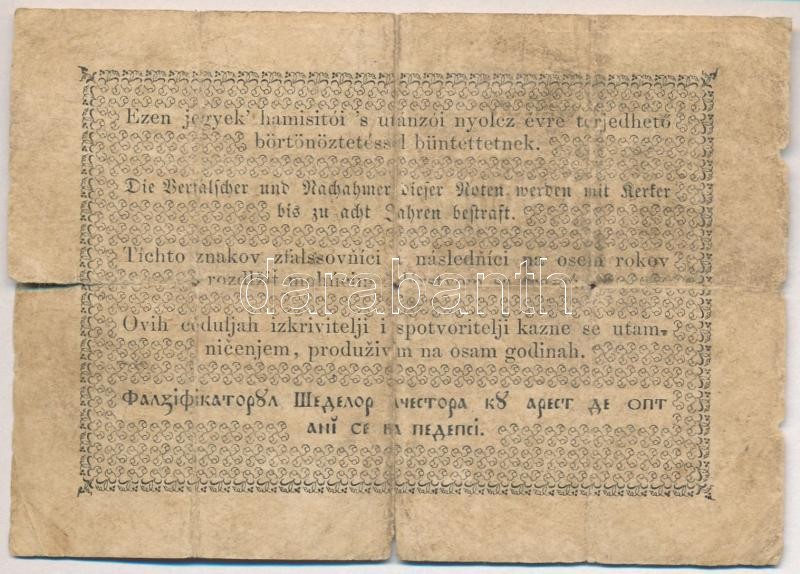 Ezen jegyek' hamisitói 's utánzói nyolcz évre terjedhető
börtönöztetéssel büntettetnek.
Die Verfälscher und Nachahmer dieser Noten werden mit Kerker
bis zu acht Jahren bestraft.
Tíchto znakov zfalssovňíci následňíci na osem rokov
Ovih ceduljah izkrivitelji i spotvoritelji kazne se utam-
ničenjem, produživim na osam godinah.
Фалꙁіфікаторꙋл Шеделор ачестора кꙋ арест де опт
анї се ва педепсі.
darabanth